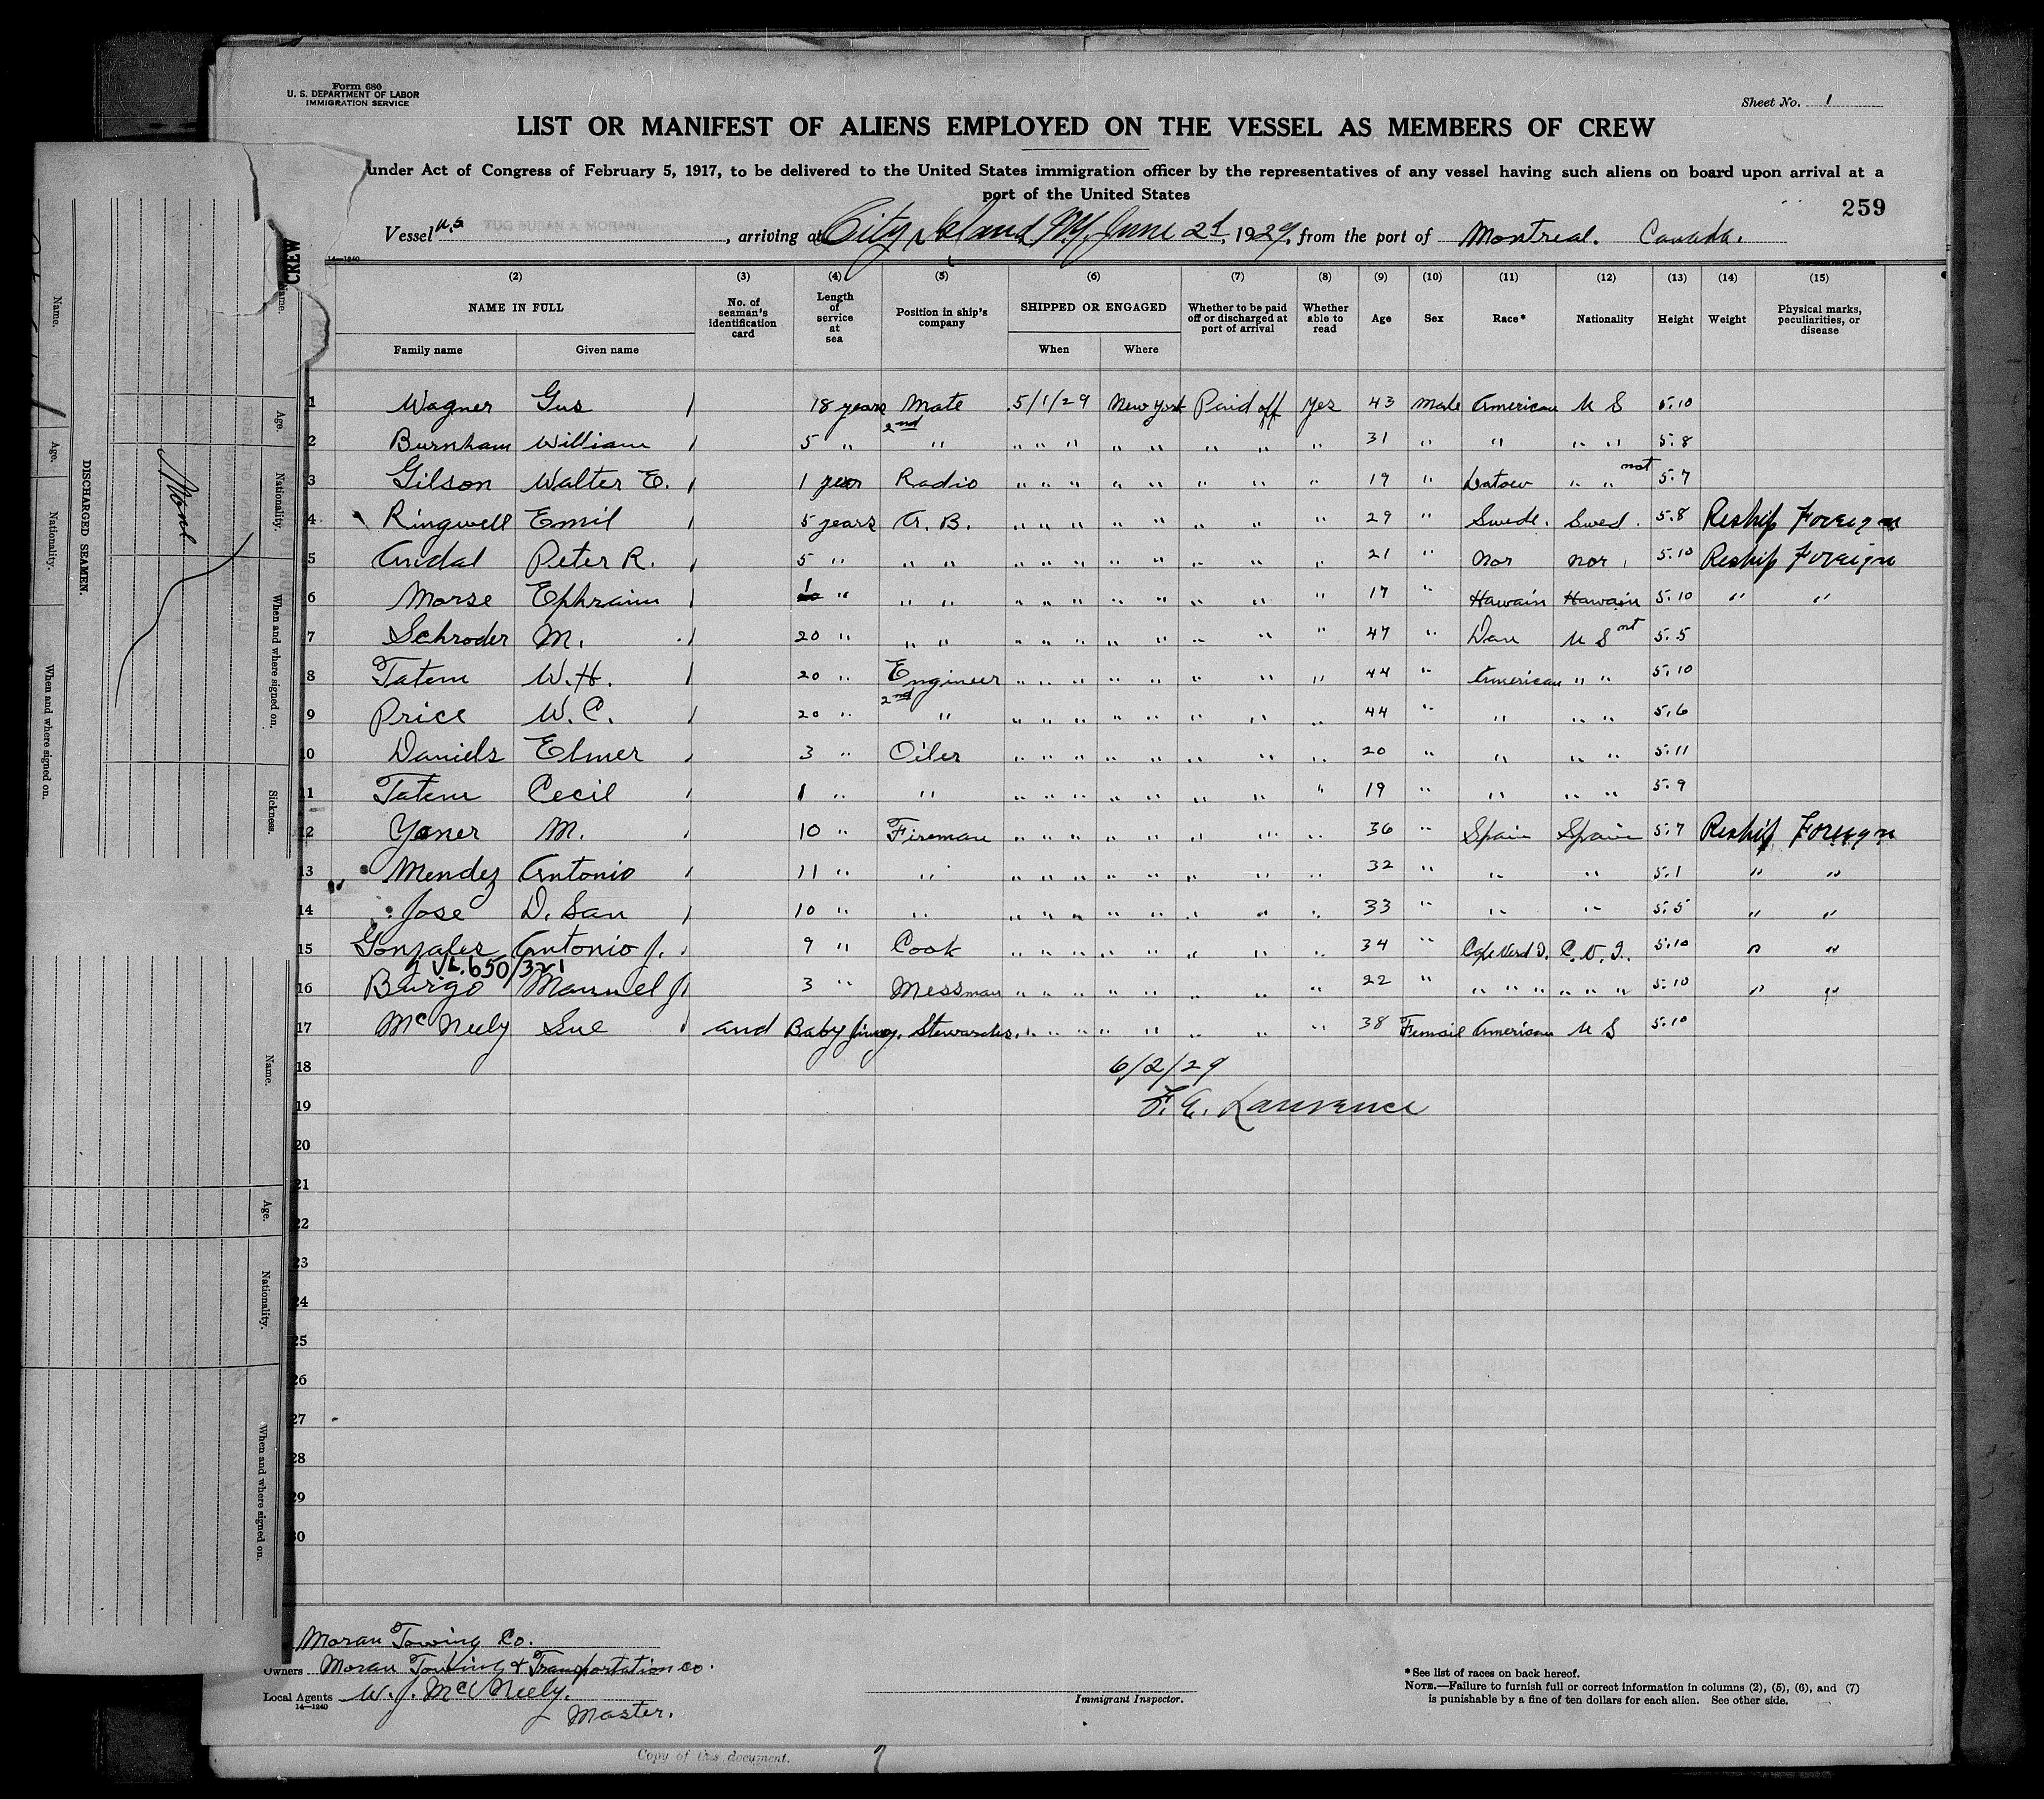 Form 680
U. S. DEPARTMENT OF LABOR
IMMIGRATION SERVICE
Sheet No. 1
LIST OR MANIFEST OF ALIENS EMPLOYED ON THE VESSEL AS MEMBERS OF CREW
under Act of Congress of February 5, 1917, to be delivered to the United States immigration officer by the representatives of any vessel having such aliens on board upon arrival at a
port of the United States
259
Vessel U.S TUG SUSAN A. MORAN, arriving at City Island N.Y. June 2d, 1929, from the port of Montreal. Canada.
14—1240
(2) (3) (4) (5) (6) (7) (8) (9) (10) (11) (12) (13) (14) (15)
NAME IN FULL No. of seaman's identification card Length of service at sea Position in ship's company SHIPPED OR ENGAGED Whether to be paid off or discharged at port of arrival Whether able to read Age Sex Race* Nationality Height Weight Physical marks, peculiarities, or disease
Family name Given name When Where
1 Wagner Gus 18 years Mate 5/1/29 New York Paid off Yes 43 Male American U S 5.10
2 Burnham William 5 " 2nd " " " " " " " " " 31 " " " " 5.8
3 Gilson Walter E. 1 year Radio " " " " " " " " 19 " " " nat 5.7
4 Ringwell Emil 5 years A. B. " " " " " " " " 29 " Swede. Swed. 5.8 Reship Foreign
5 Andal Peter R. 5 " " " " " " " " " " " 21 " Nor Nor 5.10 Reship Foreign
6 Morse Ephraim 1 " " " " " " " " " " " 17 " Hawain Hawain 5.10 " "
7 Schroder M. 20 " " " " " " " " " " " 47 " Dan U S nt 5.5
8 Tatem W. H. 20 " Engineer " " " " " " " " 44 " American " " 5.10
9 Price W. C. 20 " 2nd " " " " " " " " " 44 " " " " 5.6
10 Daniels Elmer 3 " Oiler " " " " " " " " 20 " " " " 5.11
11 Tatem Cecil 1 " " " " " " " " " " 19 " " " " 5.9
12 Yaner M. 10 " Fireman " " " " " " " " 36 " Spain Spain 5.7 Reship Foreign
13 Mendez Antonio 11 " " " " " " " " " " 32 " " " 5.1 " "
14 Jose D. San 10 " " " " " " " " " " 33 " " " 5.5 " "
15 Gonzales Antonio J. 9 " Cook " " " " " " " " 34 " Cape Verd I. C. V. I. 5.10 " "
VL.650/321
16 Burgo Manuel J 3 " Messman " " " " " " " " 22 " " " " " " " " 5.10 " "
17 McNeely Sue and Baby Stewardess. " " " " " " " " 38 Femail American U S 5.10
18 6/2/29
19 F. A. Lawrence
20
21
22
23
24
25
26
27
28
29
30
Moran Towing Co.
Owners Moran Towing & Transportation Co.
Local Agents W. J. McNeely.
14—1240
Master.
Immigrant Inspector.
*See list of races on back hereof.
NOTE.—Failure to furnish full or correct information in columns (2), (5), (6), and (7)
is punishable by a fine of ten dollars for each alien. See other side.
Copy of this document.
CREW
Name. Age. Nationality. When and where signed on. Sickness.
None
DISCHARGED SEAMEN.
Name. Age. Nationality. When and where signed on.
Name. Age. Nationality. When and where signed on.